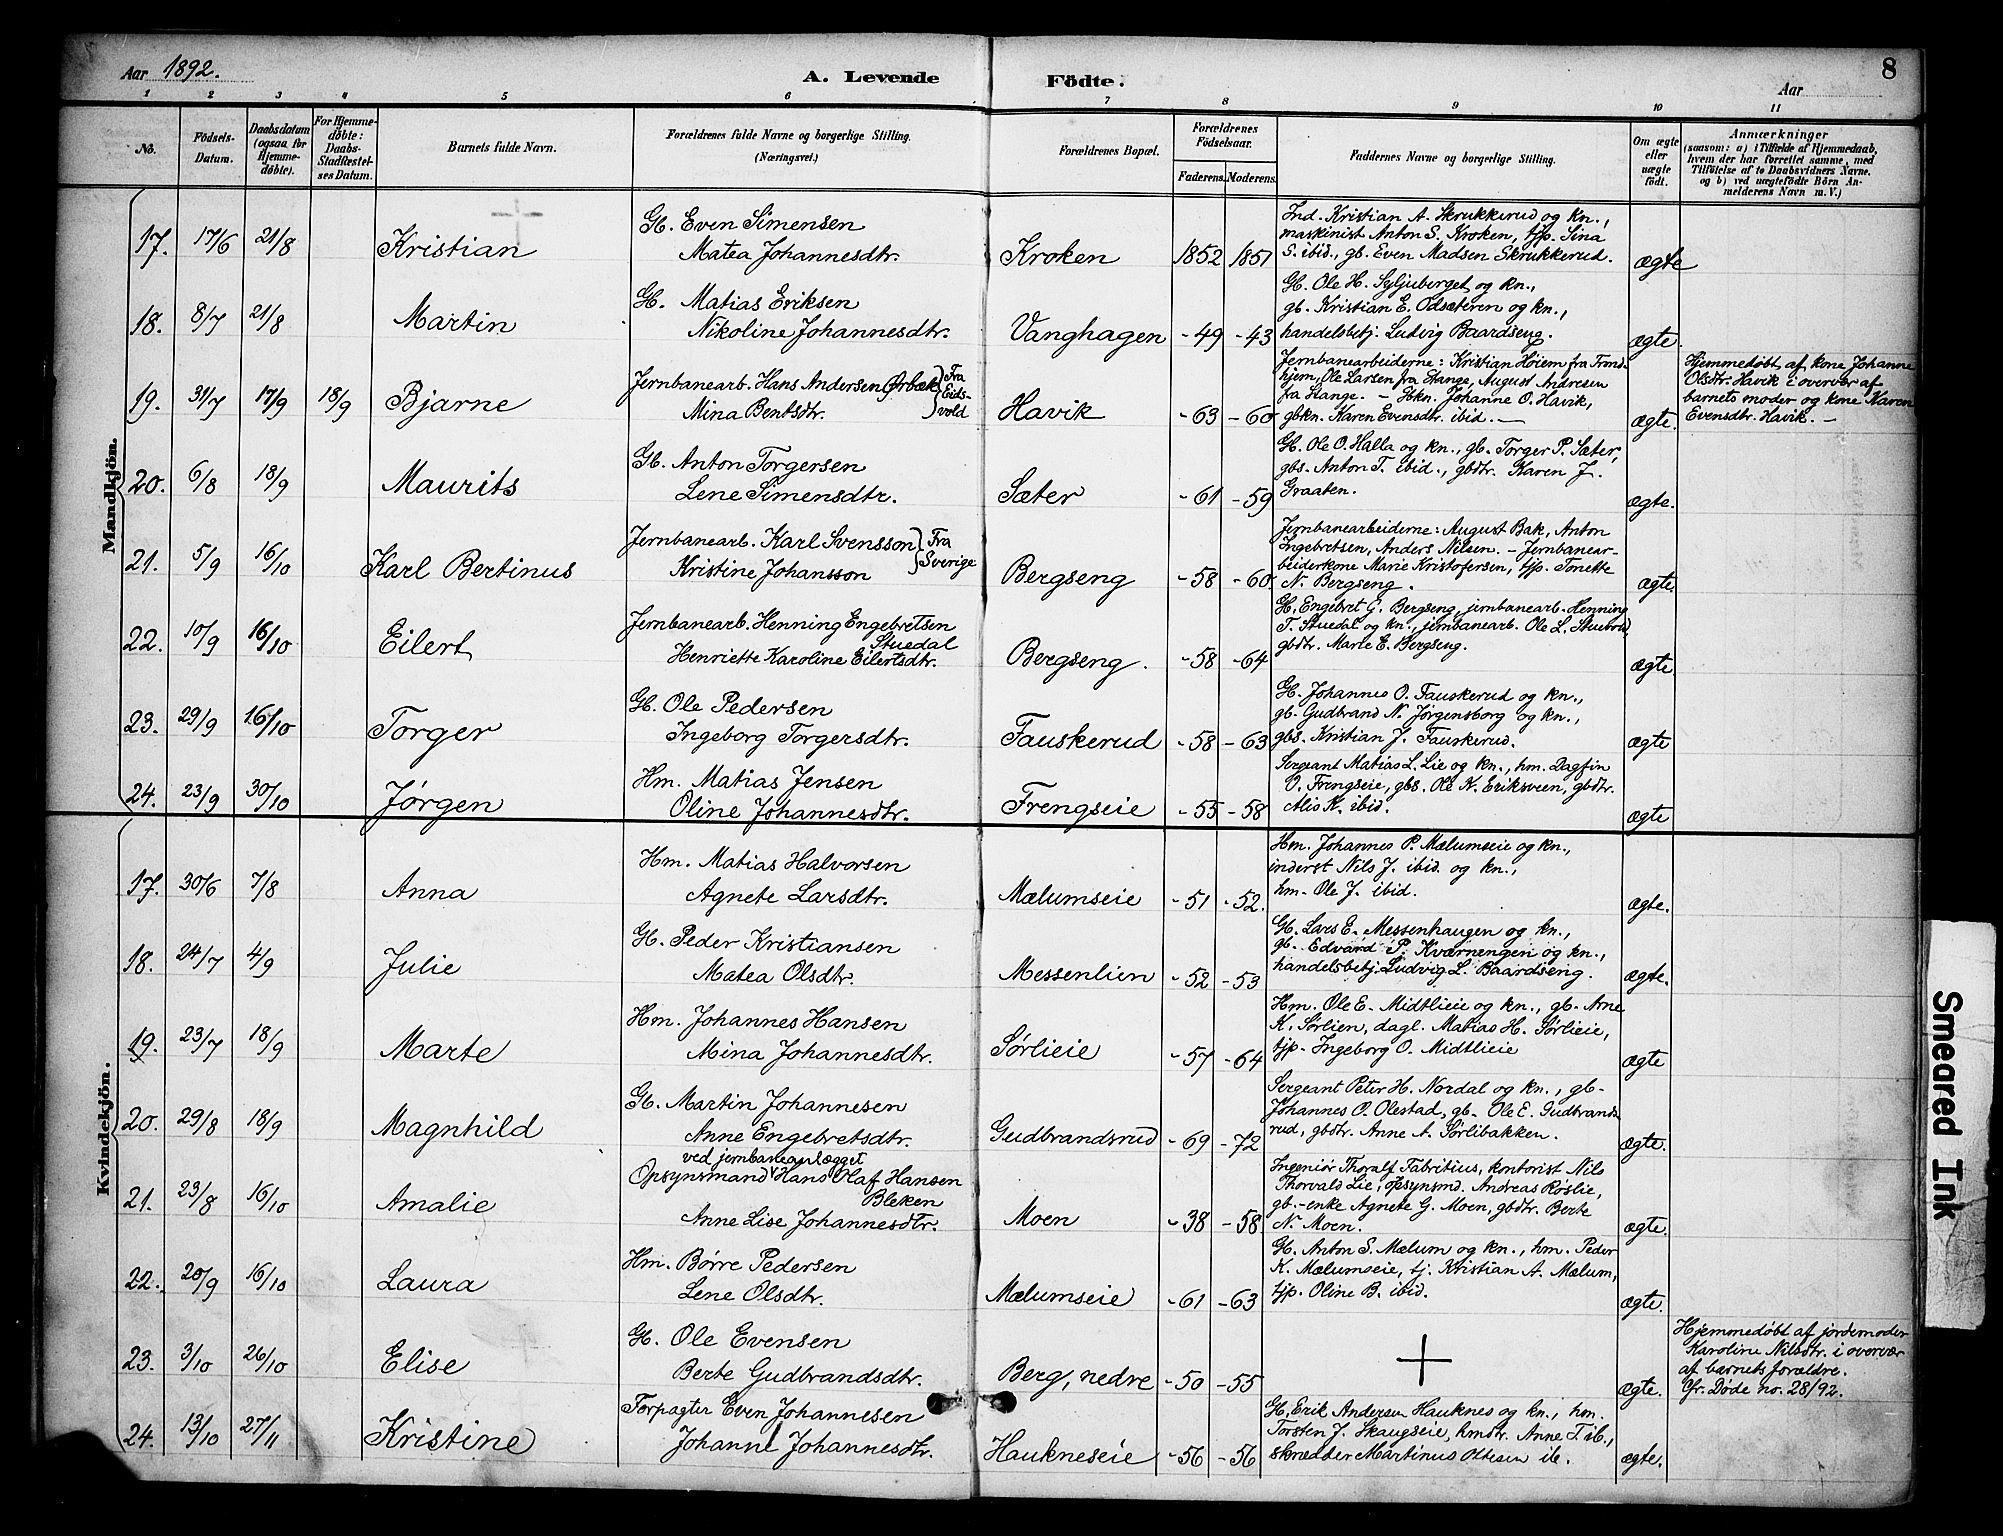 Aar 1892.
A. Levende Födte.
Aar
8
1 2 3 4 5 6 7 8 9 10 11
No.
Födsels-Datum.
Daabsdatum (ogsaa for Hjemmedöbte).
For Hjemmedöbte: Daabs-Stadfæstelses Datum.
Barnets fulde Navn.
Forældrenes fulde Navne og borgerlige Stilling. (Næringsvei.)
Forældrenes Bopæl.
Forældrenes Födselsaar.
Faderens. Moderens.
Faddernes Navne og borgerlige Stilling.
Om ægte eller uægte födt.
Anmærkninger
(saasom: a) i Tilfælde af Hjemmedaab,
hvem der har forrettet samme, med
Tilföielse af to Daabsvidners Navne,
og b) ved uægtefödte Börn An-
melderens Navn m. V.)
Mandkjön.
17. 17/6 21/8 Kristian
Gb. Even Simensen
Matea Johannesdtr.
Kroken 1852 1851
Ind. Kristian A. Skrukkerud og kn.,
maskinist Anton S. Kroken, tjp. Sina
S. ibid., gb. Even Madsen Skrukkerud.
ægte
18. 8/7 21/8 Martin
Gb. Matias Eriksen
Nikoline Johannesdtr.
Vanghagen -49 -43
Gb. Ole H. Syljuberget og kn.,
gb. Kristian E. Odsæteren og kn.,
handelsbetj. Ludvig Baardseng.
ægte.
19. 31/7 17/9 18/9 Bjarne
Jernbanearb. Hans Andersen Ørbæk
Mina Bentsdtr.
Fra Eidsvold
Havik -63 -60
Jernbanearbeiderne: Kristian Høiem fra Trond-
hjem, Ole Larsen fra Stange, August Andresen
fra Stange. – Gbkn. Johanne O. Havik,
gbkn. Karen Evensdtr. ibid. –
ægte.
Hjemmedøbt af kone Johanne
Olsdtr. Havik i overvær af
barnets moder og kone Karen
Evensdtr. Havik. –
20. 6/8 18/9 Maurits
Gb. Anton Torgersen
Lene Simensdtr.
Sæter -61 -59
Gb. Ole O. Halla og kn., gb. Torger P. Sæter,
gbs. Anton T. ibid., gbdtr. Karen J.
Graaten.
ægte.
21. 5/9 16/10 Karl Bertinus
Jernbanearb. Karl Svensson
Kristine Johansson
Fra Sverige
Bergseng -58 -60
Jernbanearbeiderne: August Bak, Anton
Ingebretsen, Anders Nilsen. – Jernbanear-
beiderkone Marie Kristofersen, tjp. Tonette
N. Bergseng.
ægte.
22. 10/9 16/10 Eilert
Jernbanearb. Henning Engebretsen
Stuedal
Henriette Karoline Eilertsdtr.
Bergseng. -58 -64
Gb. Engebret G. Bergseng, jernbanearb. Henning
T. Stuedal og kn., jernbanearb. Ole L.
gbdtr. Marie E. Bergseng.
ægte
23. 29/9 16/10 Torger
Gb. Ole Pedersen
Ingeborg Torgersdtr.
Fauskerud -58 -63
Gb. Johannes O. Fauskerud og kn.,
gb. Gudbrand N. Jørgensborg og kn.,
gbs. Kristian J. Fauskerud.
ægte
24. 23/9 30/10 Jørgen
Hm. Matias Jensen
Oline Johannesdtr.
Frengseie -55 -58
Sergeant Matias L. Lie og kn., hm. Dagfin
O. Frengseie, gbs. Ole N. Eriksveen, gbdtr.
K. ibid.
ægte
Kvindekjön.
17. 30/6 7/8 Anna
Hm. Matias Halvorsen
Agnete Larsdtr.
Mælumseie -51 -52.
Hm. Johannes P. Mælumseie og kn.,
inderst Nils J. ibid. og kn.,
hm. Ole J. ibid.
ægte.
18. 24/7 4/9 Julie
Gb. Peder Kristiansen
Matea Olsdtr.
Messenlien -52 -53
Gb. Lars E. Messenhaugen og kn.,
gb. Edvard P. Kværnengen og kn.,
handelsbetj. Ludvig L. Baardseng.
ægte.
19. 23/7 18/9 Marte
Hm. Johannes Hansen
Mina Johannesdtr.
Sørlieie -57 -64
Hm. Ole E. Midtlieie og kn., gb. Arne
K. Sørlien, dagl. Matias H. Sørlieie,
tjp. Ingeborg O. Midtlieie
ægte
20. 29/8 18/9 Magnhild
Gb. Martin Johannesen
Anne Engebretsdtr.
Gudbrandsrud -69 -72
Sergeant Peter H. Nordal og kn., gb.
Johannes O. Olestad, gb. Ole E. Gudbrands-
rud, gbdtr. Anne A. Sørlibakken.
ægte.
21. 23/8 16/10 Amalie
ved jernbaneanlægget
Opsynsmand Hans Olaf Hansen
Bleken
Anne Lise Johannesdtr.
Moen -38 -58.
Ingeniør Thoralf Fabritius, kontorist Nils
Thorvald Lie, opsynsmd. Andreas Røslie,
gb.-enke Agnete G. Moen, gbdtr. Berte
N. Moen.
ægte.
22. 20/9 16/10 Laura
Hm. Børre Pedersen
Lene Olsdtr.
Mælumseie -61 -63
Gb. Anton S. Mælum og kn., hm. Peder
K. Mælumseie, tj. Kristian A. Mælum,
tjp. Oline B. ibid.
ægte.
23. 3/10 26/10 Elise
Gb. Ole Evensen
Berte Gudbrandsdtr.
Berg, nedre -50 -55
ægte.
Hjemmedøbt af jordemoder
Karoline Nilsdtr. i overvær
af barnets forældre.
Cfr. Døde no. 28/92.
24. 13/10 27/11 Kristine
Forpagter Even Johannesen
Johanne Johannesdtr.
Haukneseie -56 -56
Gb. Erik Andersen Hauknes og kn., hm.
Torsten J. Skaugseie, hmdtr. Anne T. ib.,
skrædder Martinus Ottesen ib.
ægte.
Smeared Ink